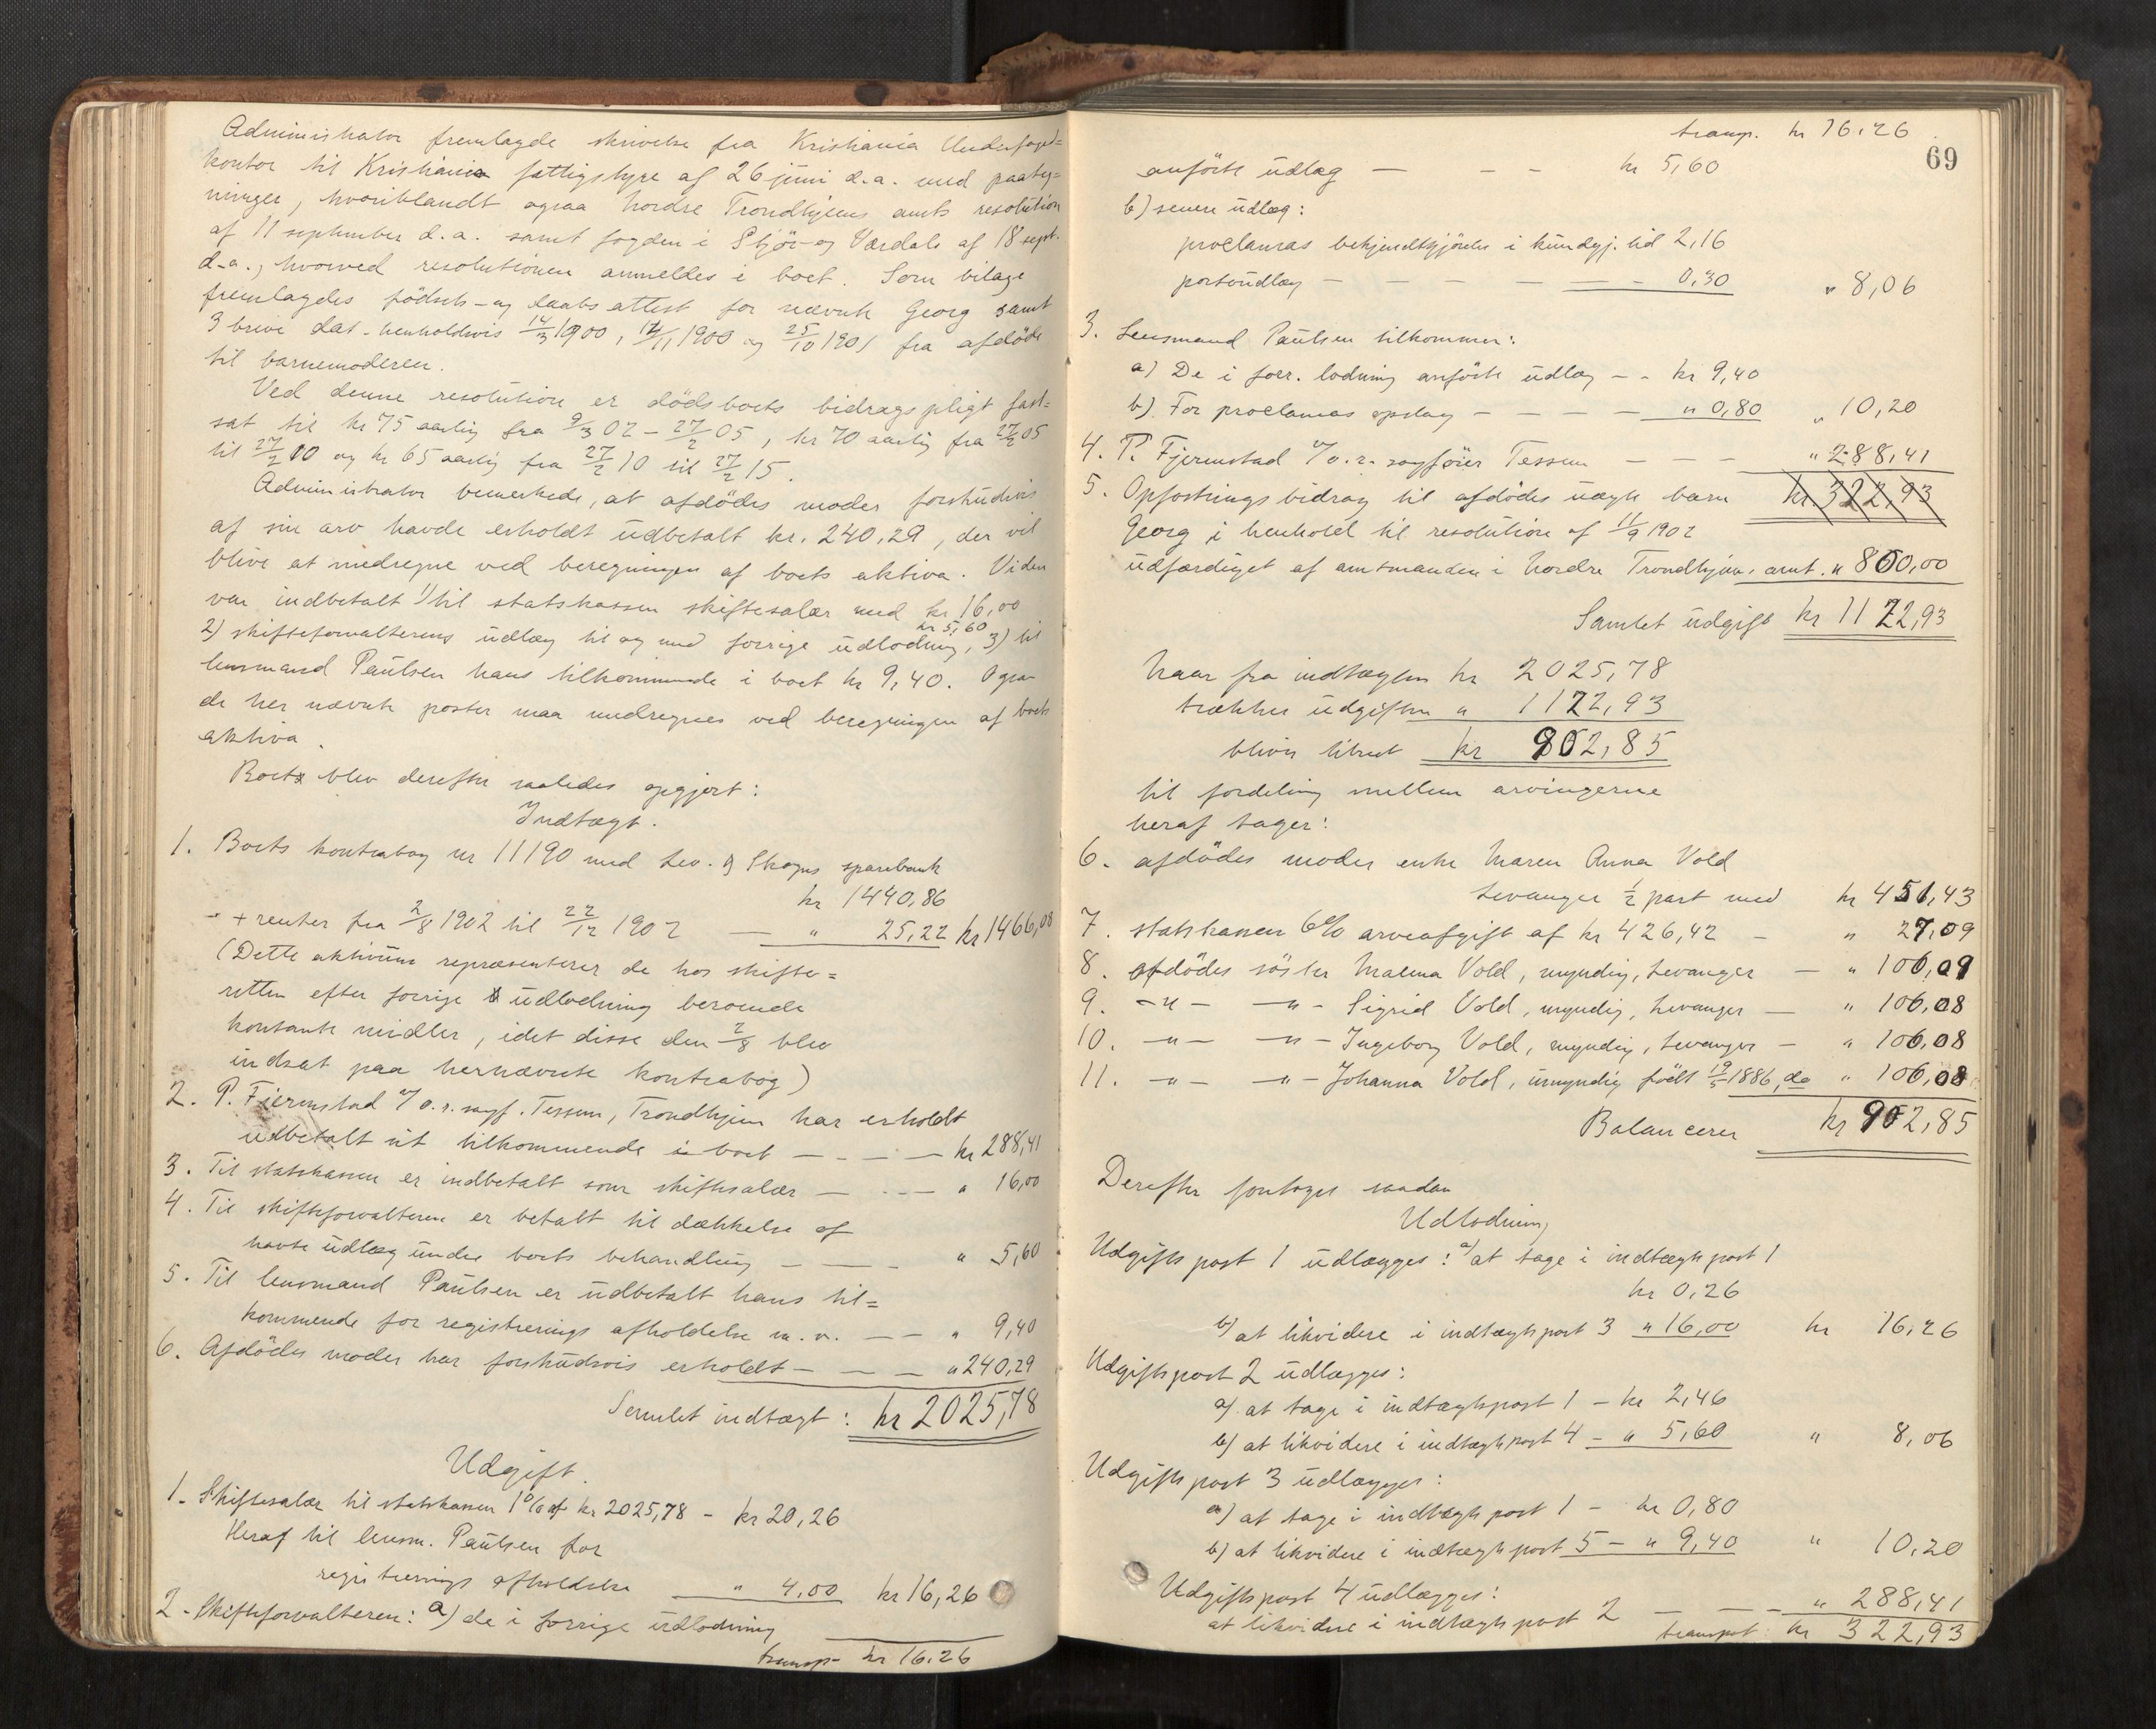 Administrator fremlagde skrivelse fra Kristiania Underfoged=
kontor til Kristiania fattigstyre af 26 juni d.a. med paateg=
ninger, hvoriblandt ogsaa Nordre Trondhjems amts resolution
af 11 september d.a. samt fogden i Stjör- og Værdals af 18 sept.
d.a., hvorved resolutionen anmeldes i boet. Som bilage
fremlagdes födsels- og daabsattest for nævnte Georg samt
3 breve dat. henholdsvis 14/3 1900, 14/11 1900 og 25/10 1901 fra afdöde
til barnemoderen.
Ved denne resolution er dödsboets bidragspligt fast=
sat til kr 75 aarlig fra 9/3 02 - 27/2 05, kr 70 aarlig fra 27/2 05
til 27/2 10 og kr 65 aarlig fra 27/2 10 til 27/2 15.
Administrator bemerkede, at afdödes moder forskudsvis
af sin arv havde erholdt udbetalt kr. 240,29, der vil
blive at medregne ved beregningen af boets aktiva. Viden
var indbetalt 1) til statskassen skiftesalær med kr 16,00
2) skifteforvalterens udlæg til og med forrige udlodning, kr 5,60 3) til
lensmand Paulsen hans tilkommende i boet kr 9,40. Ogsaa
de her nævnte poster maa medregnes ved beregningen af boets
aktiva.
Boet blev derefter saaledes opgjort:
Indtægt.
1. Boets kontrabog nr 11190 med Lev. og Skogns sparebank
kr 1440,86
+ renter fra 2/8 1902 til 22/12 1902 — " 25,22 kr 1466,08
(Dette aktivum repræsenterer de hos skifte=
retten efter forrige udlodning beroende
kontante midler, idet disse den 2/8 blev
indsat paa hernævnte kontrabog)
2. P. Fjermstad v/ o.r.sagf. Tessem, Trondhjem har erholdt
udbetalt sit tilkommende i boet — — — kr 288,41
3. Til statskassen er indbetalt som skiftesalær — — " 16,00
4. Til skifteforvalteren er betalt til dækkelse af
havte udlæg under boets behandling — — — " 5,60
5. Til lensmand Paulsen er udbetalt hans til=
kommende for registrerings afholdelse m.v. — — " 9,40
6. Afdödes moder har forskudsvis erholdt — — — " 240,29
Samlet indtægt: kr 2025,78
Udgift.
1. Skiftesalær til statskassen 1% af kr 2025,78 - kr 20,26
Heraf til lensm. Paulsen for
registrerings afholdelse — " 4,00 kr 16,26
2. Skifteforvalteren: a) de i forrige udlodning
transp. kr 16.26
69
transp. kr 16.26
anförte udlæg — — — kr 5,60
b) senere udlæg:
proclamas bekjendtgjörelse i kundgj. tid 2,16
portoudlæg — — — — — 0,30 " 8,06
3. Lensmand Paulsen tilkommer:
a) De i forr. lodning anförte udlæg — - kr 9,40
b) For proclamas opslag — — — — " 0,80 " 10,20
4. P. Fjermstad v/ o.r. sagförer Tessem — — — " 288,41
5. Opfostringsbidrag til afdödes uægte barn kr. 322,93
Georg i henhold til resolution af 11/9 1902
udfærdiget af amtmanden i Nordre Trondhjems amt. " 850,00
Samlet udgift kr 1172,93
Naar fra indtægten kr 2025,78
trækkes udgiften " 1172,93
bliver tilrest kr 852,85
til fordeling mellem arvingerne
heraf tager:
6. afdödes moder enke Maren Anna Vold
Levanger 1/2 part med kr 451,43
7. statskassen 6% arveafgift af kr 426,42 — " 27,09
8. afdödes söster Malena Vold, myndig, Levanger — " 106,09
9. -"- -"- Sigrid Vold, myndig, Levanger — " 106,08
10. -"- -"- Ingeborg Vold, myndig, Levanger — " 106,08
11. -"- -"- Johanna Vold, umyndig född 19/5 1886, do " 106,08
Balancerer kr 902,85
Derefter foretoges saadan
Udlodning
Udgiftspost 1 udlægges: a) at tage i indtægtspost 1
kr 0,26
b) at likvidere i indtægtspost 3 " 16,00 kr 16,26
Udgiftspost 2 udlægges:
a) at tage i indtægtspost 1 - kr 2,46
b) at likvidere i indtægtspost 4 - " 5,60 " 8,06
Udgiftspost 3 udlægges:
a) at tage i indtægtspost 1 - kr 0,80
b) at likvidere i indtægtspost 5 - " 9,40 " 10,20
Udgiftspost 4 udlægges:
at likvidere i indtægtspost 2 — — — " 288,41
transport: kr 322,93